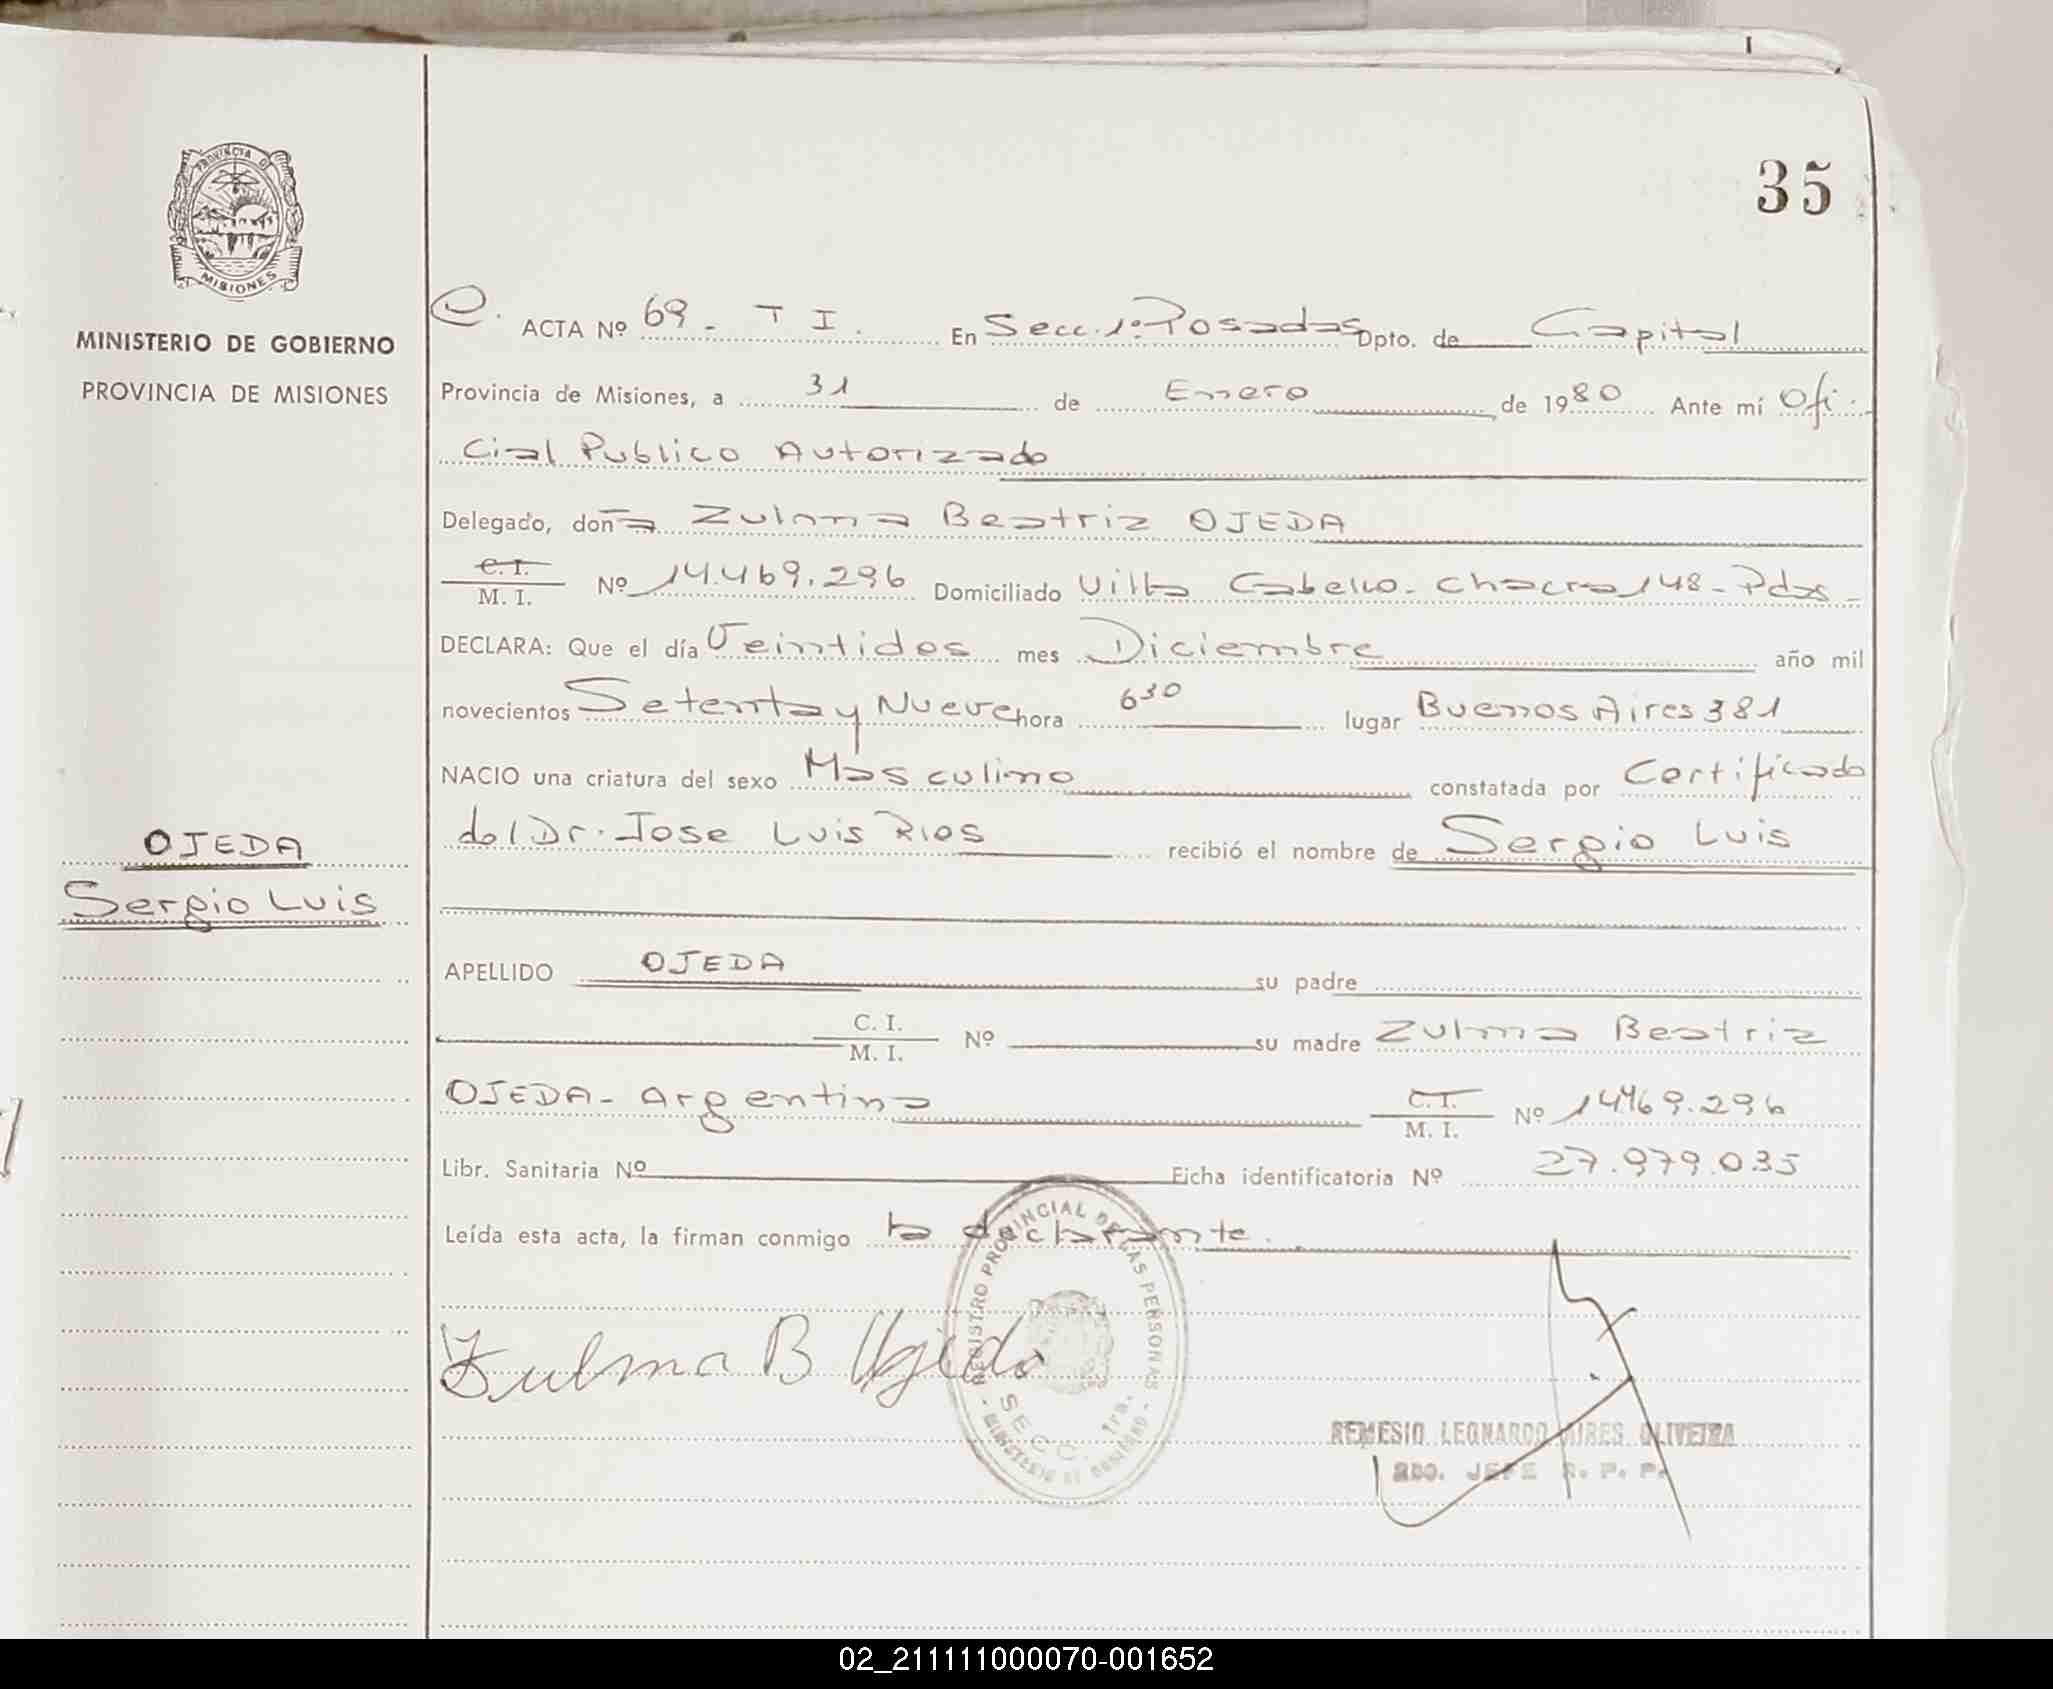 35
PROVINCIA D
MISIONES
MINISTERIO DE GOBIERNO
PROVINCIA DE MISIONES
OJEDA
Sergio Luis
C. ACTA Nº 69. T I. En Secc. 1º. Posadas Dpto. de Capital
Provincia de Misiones, a 31 de Enero de 1980 Ante mí Ofi-
cial Publico Autorizado
Delegado, don̄a Zulma Beatriz OJEDA
C. I.
M. I. Nº 14.469.296 Domiciliado Villa Cabello - Chacra 148 - Pdas -
DECLARA: Que el día Veintidos mes Diciembre año mil
novecientos Setenta y Nueve hora 6 30 lugar Buenos Aires 381
NACIO una criatura del sexo Masculino constatada por Certificado
del Dr. Jose Luis Rios recibió el nombre de Sergio Luis
APELLIDO OJEDA su padre
C. I.
M. I. Nº su madre Zulma Beatriz
OJEDA - Argentina C. I.
M. I. Nº 14469.296
Libr. Sanitaria Nº Ficha identificatoria Nº 27.979.035
Leída esta acta, la firman conmigo la declarante.
REGISTRO PROVINCIAL DE LAS PERSONAS
SECC. 1ra.
MINISTERIO DE GOBIERNO
Zulma B Ojeda
REMESIO LEONARDO AIRES OLIVEIRA
2do. JEFE R. P. P.
02_211111000070-001652